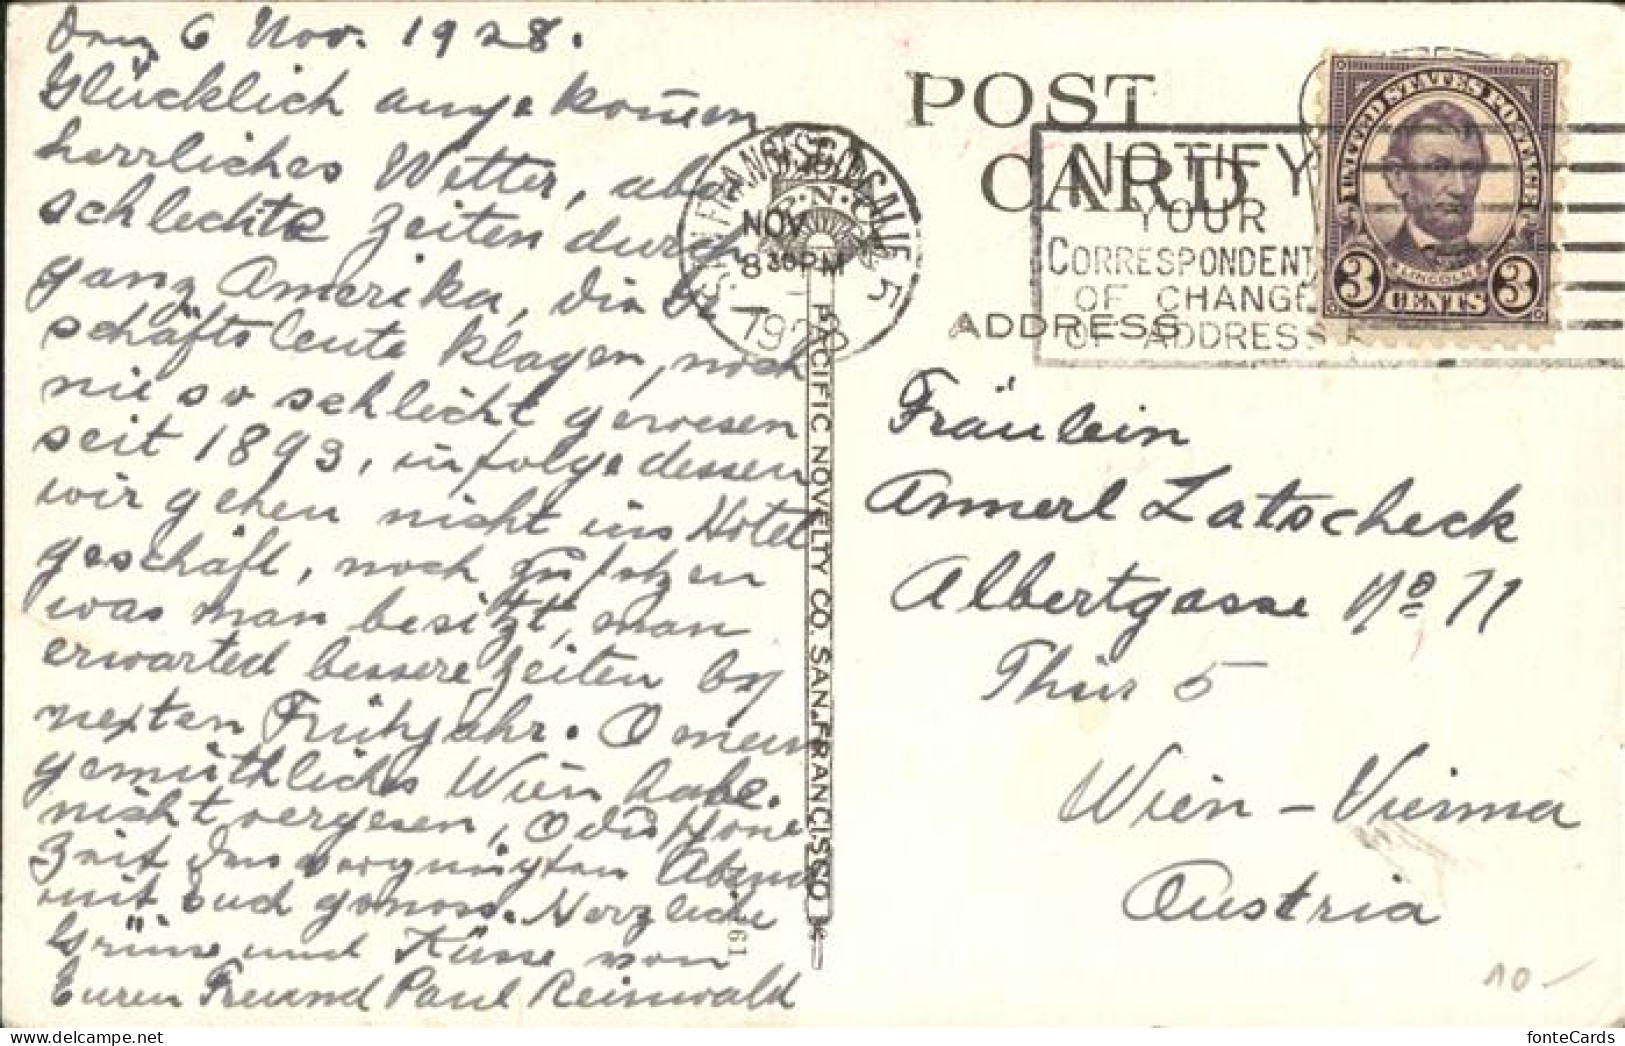 Den 6 Nov. 1928.
Glücklich angekom̄en
herrliches Wetter, aber
schlechte Zeiten durch
ganz Amerika, die Ge
schäftsleute klagen, noch
nie so schlecht gewesen
seit 1893, infolgedessen
wir gehen nicht ins Hotel
geschäft, noch
was man besitzt, man
erwarted bessere Zeiten by
nexten Frühjahr. O mein
gemüthliches Wien habe.
nicht vergesen, O die schöne
Zeit den vergnügten Abend
mit Euch genoss. Herzliche
Grüsse und Küsse von
Euren Freund Paul Reinwald
POST CARD
ADDRESS
SAN FRANCISCO, CALIF. 5
NOV
8 30 PM
192
NOTIFY
YOUR
CORRESPONDENTS
OF CHANGE
OF ADDRESS
UNITED STATES POSTAGE
LINCOLN
3 CENTS 3
P.N.
PACIFIC NOVELTY CO. SAN FRANCISCO
61
Fräulein
Annerl Latscheck
Albertgasse No 11
Thür 5
Wien - Vienna
Austria
10.-
fonteCards